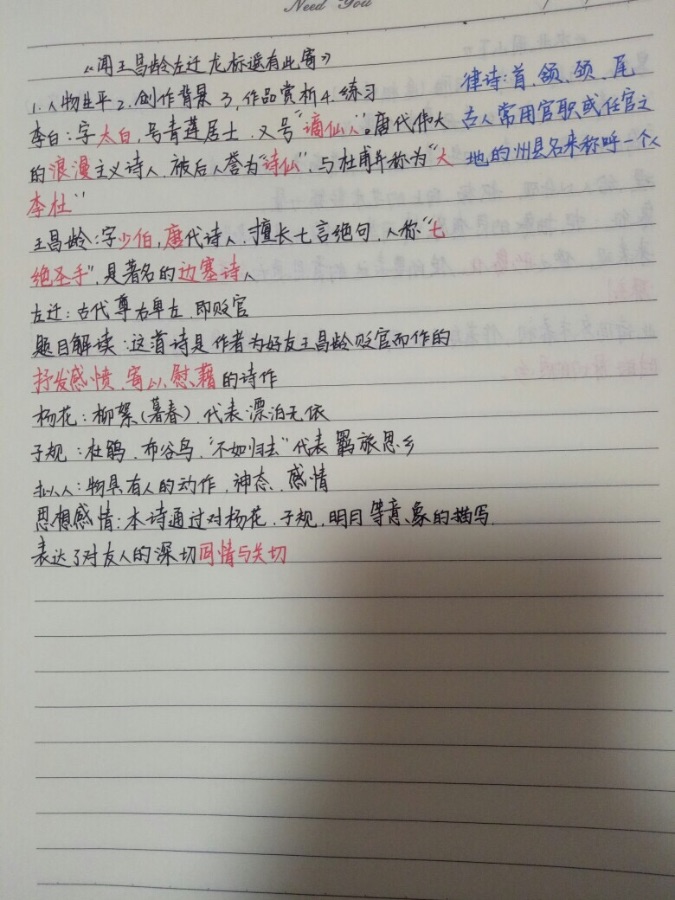 Need You
《闻王昌龄左迁龙标遥有此寄》
1.人物生平2.创作背景3.作品赏析4.练习
律诗:首、颔、颈、尾
李白:字太白,号青莲居士,又号“谪仙人”。唐代伟大
古人常用官职或任官之
的浪漫主义诗人,被后人誉为“诗仙”,与杜甫并称为“大
地的州县名来称呼一个人
李杜”
王昌龄:字少伯,唐代诗人,擅长七言绝句,人称“七
绝圣手”,是著名的边塞诗人
左迁:古代尊右卑左,即贬官
题目解读:这首诗是作者为好友王昌龄贬官而作的
抒发感愤,寄以慰藉的诗作
杨花:柳絮(暮春),代表漂泊无依
子规:杜鹃、布谷鸟,“不如归去”代表羁旅思乡
拟人:物具有人的动作、神态、感情
思想感情:本诗通过对杨花、子规、明月等意象的描写,
表达了对友人的深切同情与关切